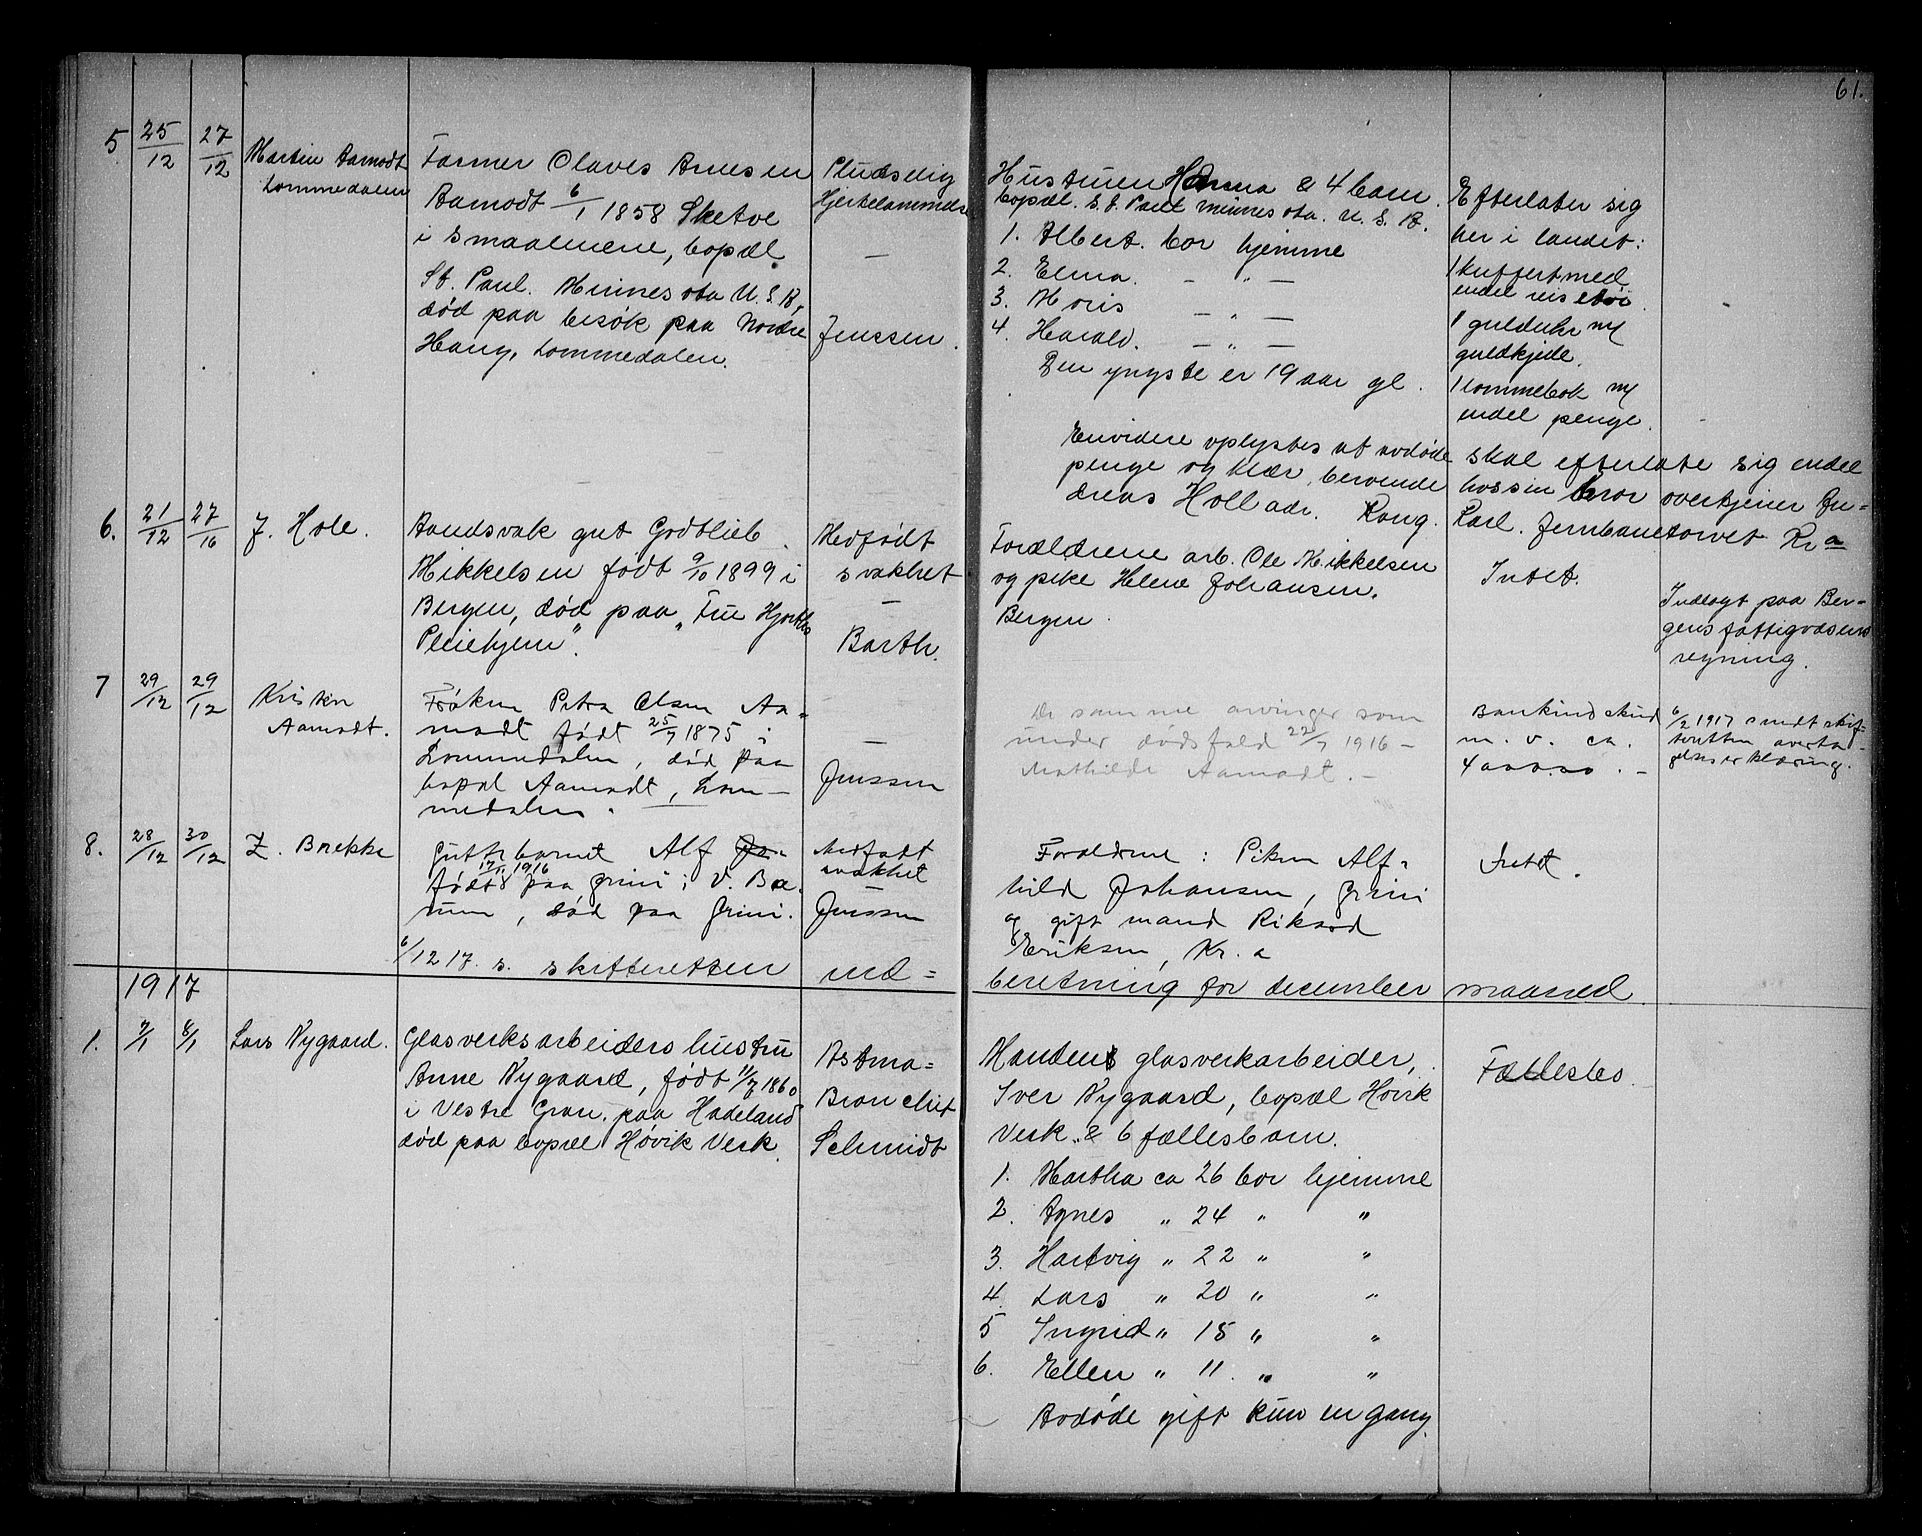 61.
5 25/12 27/12 Martin Aamodt
Lommedalen
Farmer Olaves Arnesen
Aamodt 6/1 1858 Sketve
i Smaalenene, bopæl
St. Paul. Minnesota U.S.A,
død paa besøk paa Nordre
Haug, Lommedalen.
Pludselig
Hjertelammelse
—
Jenssen.
Hustruen Hanna & 4 barn.
bopæl. St. Paul Minnesota. U.S.A.
1. Albert. bor hjemme
2. Elma. - " -
3. Moris - " -
4. Harald. - " -
Den yngste er 19 aar gl.
Efterlater sig
her i landet:
1 kuffert med
endel reisetøi.
1 guldur m/
guldkjede.
1 lommebok m/
endel penge.
Envidere oplystes at avdøde skal efterlate sig endel
penge og klær, beroende hos sin bror overtjener An-
dreas Holl adr. Kong. Carl. Jernbanetorvet Kr.a
6. 21/12 27/16 J. Hole.
Aandsvak gut Godtlieb
Mikkelsen født 9/10 1899 i
Bergen, død paa "Fru Hjorths
Pleiehjem".
Medfødt
svakhet
—
Barth.
Forældrene arb. Ole Mikkelsen
og pike Helene Johansen.
Bergen.
Intet.
Indlagt paa Ber-
gens fattigvæsens
regning.
7 29/12 29/12 Kristen
Aamodt.
Frøken Petra Olsen Aa-
modt født 25/7 1875 i
Lommedalen, død paa
bopæl Aamodt, Lom-
medalen.
—
Jenssen
De samme arvinger som
under dødsfald 22/7 1916 -
Mathilde Aamodt. -
Bankindskud
m. v. ca.
4000.00. -
6/2 1917 sendt skif-
teretten overta-
gelseserklæring.
8. 28/12 30/12 Z. Brekke
Guttebarnet Alf Jo-
født 17/11 1916 paa Grini i V. Bæ-
rum, død paa Grini.
Medfødt
svakhet
Jenssen
Forældrene: Piken Alf-
hild Johansen, Grini
og gift mand Rikard
Eriksen, Kr. a
Intet.
6/12 17. s. skifteretten ind= beretning for december maaned.
1917
1. 7/1 8/1 Lars Nygaard.
Glasverksarbeiders hustru
Anne Nygaard, født 11/7 1860
i Vestre Gran. paa Hadeland
død paa bopæl Høvik Verk.
Astma=
Bronchit
Schmidt
Manden glasverkarbeider,
Iver Nygaard, bopæl Høvik
Verk. & 6 fællesbarn.
1. Martha ca 26 bor hjemme
2. Agnes " 24 " "
3. Hartvig " 22 " "
4. Lars " 20 " "
5 Ingrid " 18 " "
6. Ellen " 11. " "
Avdøde gift kun en gang.
Fællesbo.